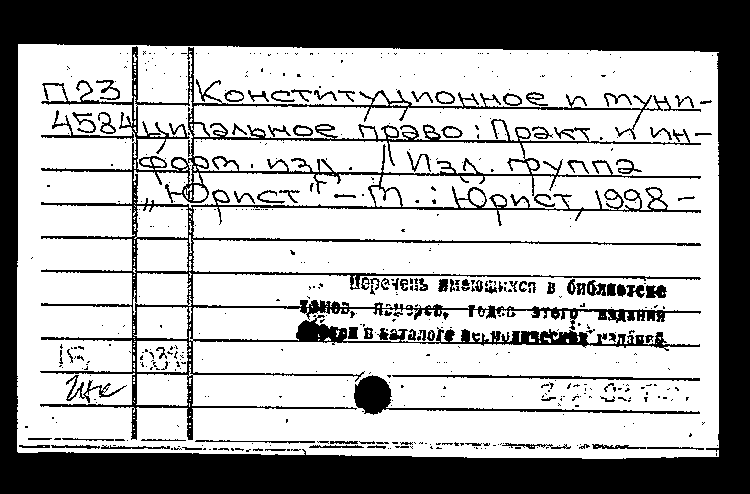 П23 Конституционное и муни-
4584 ципальное право: Практ. и ин-
форм. изд. / Изд. группа
„Юрист“. – М.: Юрист, 1998 –
Перечень имеющихся в библиотеке
томов, номеров, годов этого издания
смотри в каталоге периодических изданий